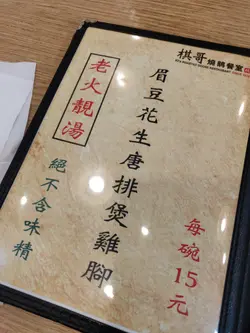 棋哥燒鵝餐室
老火靚湯
眉豆花生唐排煲雞腳
每碗15元
絕不含味精